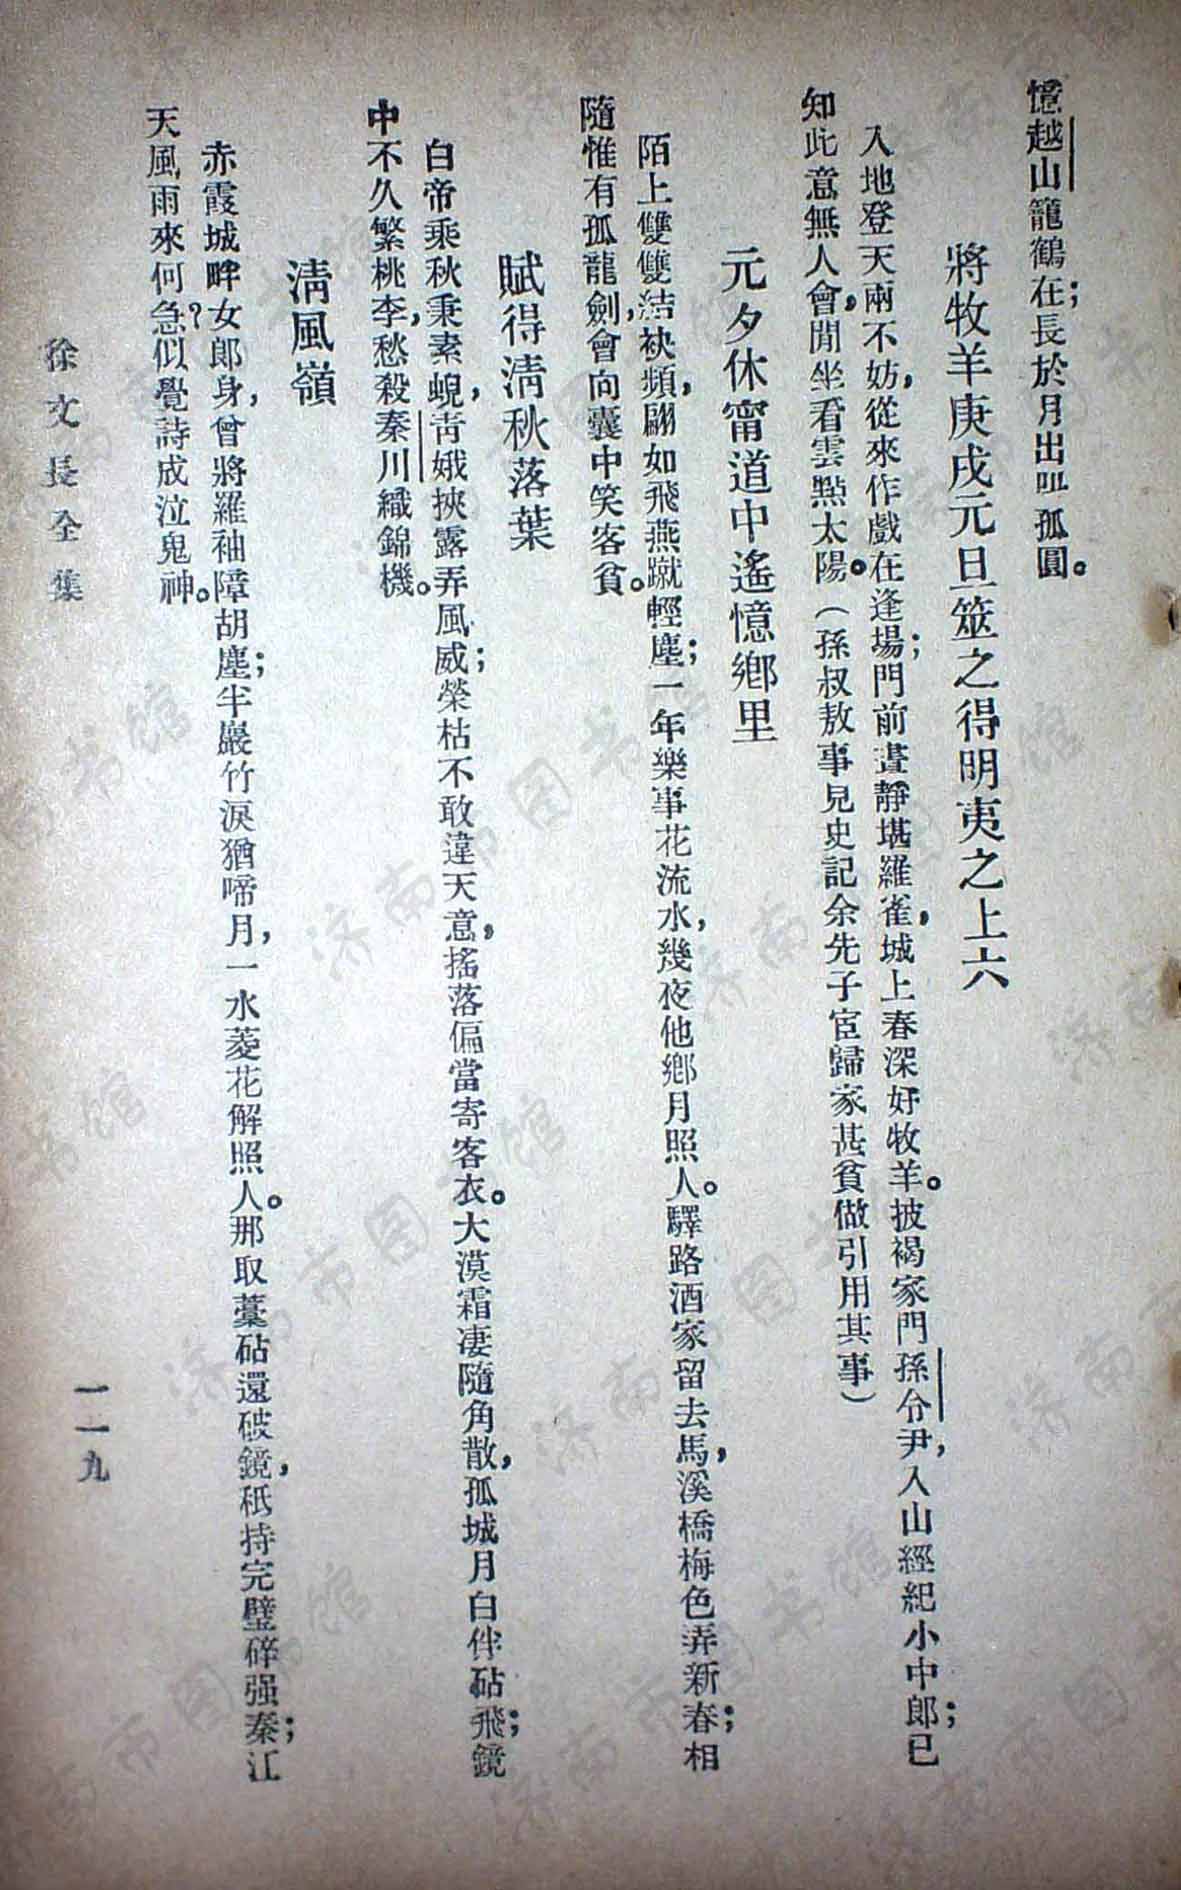 憶越山籠鶴在；長於月出叫孤圓。
將牧羊庚戌元旦筮之得明夷之上六
入地登天兩不妨，從來作戲在逢場；門前晝靜堪羅雀，城上春深好牧羊。披褐家門孫令尹，入山經紀小中郎；已
知此意無人會，閒坐看雲點太陽。（孫叔敖事見史記余先子宦歸家甚貧做引用其事）
元夕休甯道中遙憶鄉里
陌上雙雙結袂頻，翩如飛燕蹴輕塵；一年樂事花流水，幾夜他鄉月照人。驛路酒家留去馬，溪橋梅色弄新春；相
隨惟有孤龍劍，會向囊中笑客貧。
賦得淸秋落葉
白帝乘秋秉素蜺，靑娥挾露弄風威；榮枯不敢違天意，搖落偏當寄客衣。大漠霜凄隨角散，孤城月白伴砧飛；鏡
中不久繁桃李，愁殺秦川織錦機。
淸風嶺
赤霞城畔女郞身，曾將羅袖障胡塵；半巖竹淚猶啼月，一水菱花解照人。那取藁砧還破鏡，秖持完璧碎强秦；江
天風雨來何急？似覺詩成泣鬼神。
徐文長全集
一一九